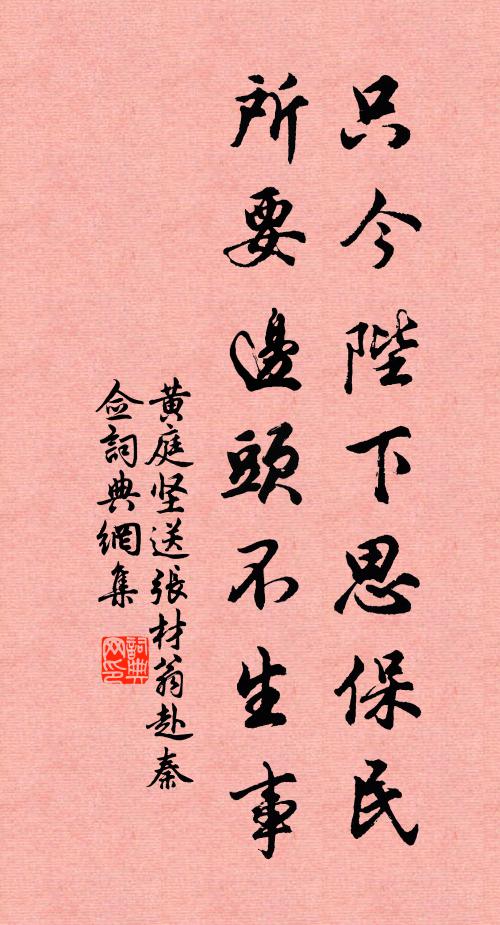 只今陛下思保民
所要邊頭不生事
黄庭坚送張材翁赴秦
佥詞典網集
詞典
网印